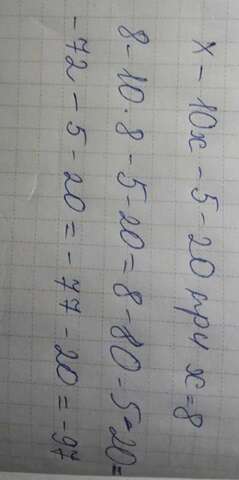 x - 10x - 5 - 20 при x=8
8 - 10 · 8 - 5 - 20 = 8 - 80 - 5 - 20 =
- 72 - 5 - 20 = - 77 - 20 = -97